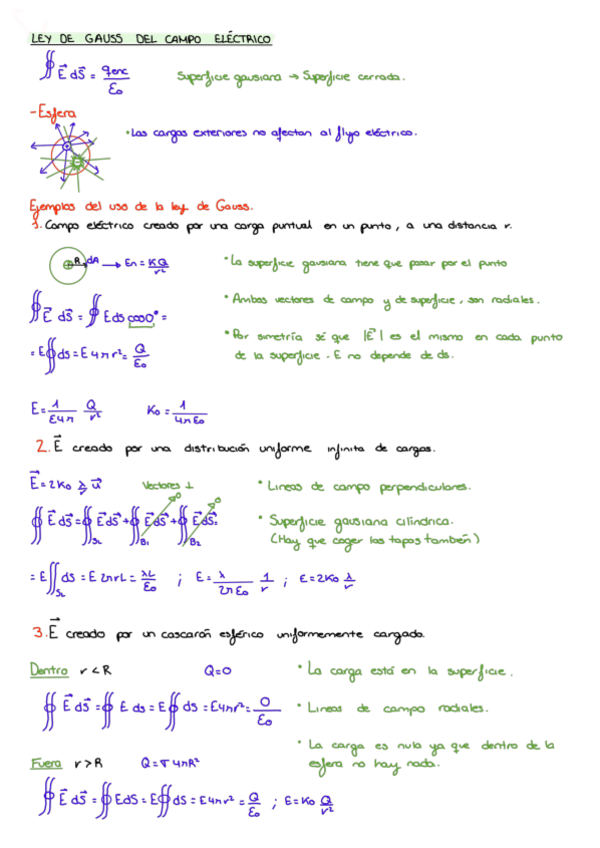 LEY DE GAUSS DEL CAMPO ELÉCTRICO
∯ E⃗ dS⃗ = qenc / Eo
Superficie gausiana → Superficie cerrada.
- Esfera
• Las cargas exteriores no afectan al flujo eléctrico.
Ejemplos del uso de la ley de Gauss.
1. Campo eléctrico creado por una carga puntual en un punto, a una distancia r.
R dA → En = KQ / r²
• La superficie gausiana tiene que pasar por el punto
∯ E⃗ dS⃗ = ∯ E ds cos0° =
• Ambos vectores de campo y de superficie, son radiales.
= E ∯ ds = E 4π r² = Q / Eo
• Por simetría sé que |E⃗| es el mismo en cada punto
de la superficie. E no depende de ds.
E = 1 / E04π Q / r²
Ko = 1 / 4πEo
2. E⃗ creado por una distribución uniforme infinita de cargas.
E⃗ = 2Ko λ / r u⃗
Vectores ⊥
• Lineas de campo perpendiculares.
0 0
∯ E⃗ dS⃗ = ∯SL E⃗ dS⃗ + ∯B1 E⃗ dS⃗ + ∯B2 E⃗ dS⃗2
• Superficie gausiana cilíndrica.
(Hay que coger las tapas también)
= E ∬SL ds = E 2πrL = λL / Eo ; E = λ / 2πEo 1 / r ; E = 2Ko λ / r
3. E⃗ creado por un cascarón esférico uniformemente cargado.
Dentro r < R Q = 0
• La carga está en la superficie.
∯ E⃗ dS⃗ = ∯ E ds = E ∯ ds = E4πr² = 0 / Eo
• Lineas de campo radiales.
• La carga es nula ya que dentro de la
esfera no hay nada.
Fuera r > R Q = σ 4πR²
∯ E⃗ dS⃗ = ∯ EdS = E ∯ ds = E4πr² = Q / Eo ; E = Ko Q / r²